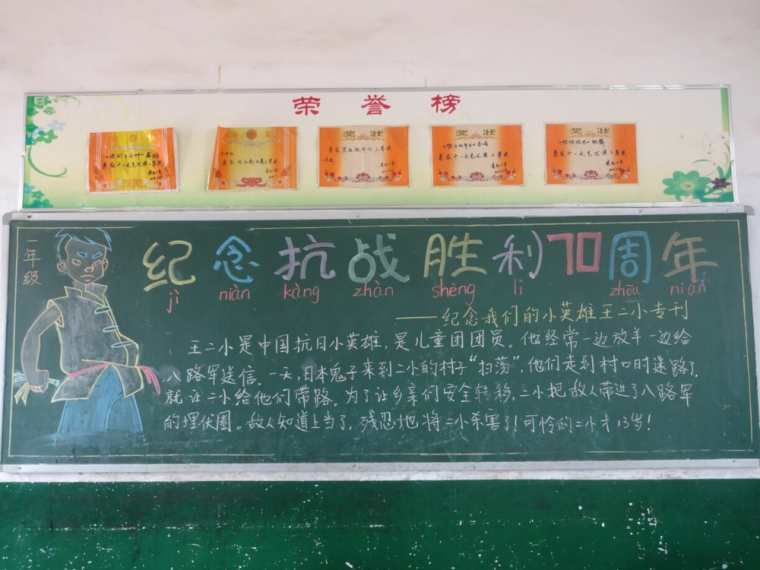 荣誉榜
奖状
奖状
奖状
一年级
纪念抗战胜利70周年
jì niàn kàng zhàn shèng lì zhōu nián
——纪念我们的小英雄王二小专刊
王二小是中国抗日小英雄,是儿童团团员。他经常一边放羊一边给
八路军送信。一天,日本鬼子来到二小的村子“扫荡”,他们走到村口时迷路了,
就让二小给他们带路。为了让乡亲们安全转移,二小把敌人带进了八路军
的埋伏圈。敌人知道上当了,残忍地将二小杀害了!可怜的二小才13岁!